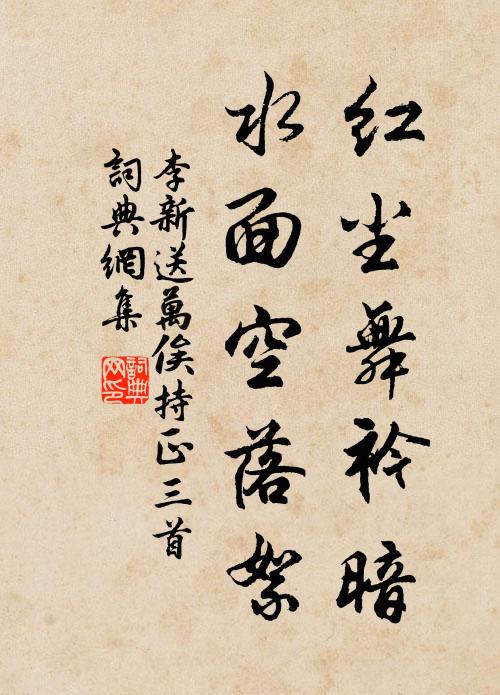 红尘舞衿暗
水面空落絮
李新送萬俟持正三首
詞典網集
詞典网印